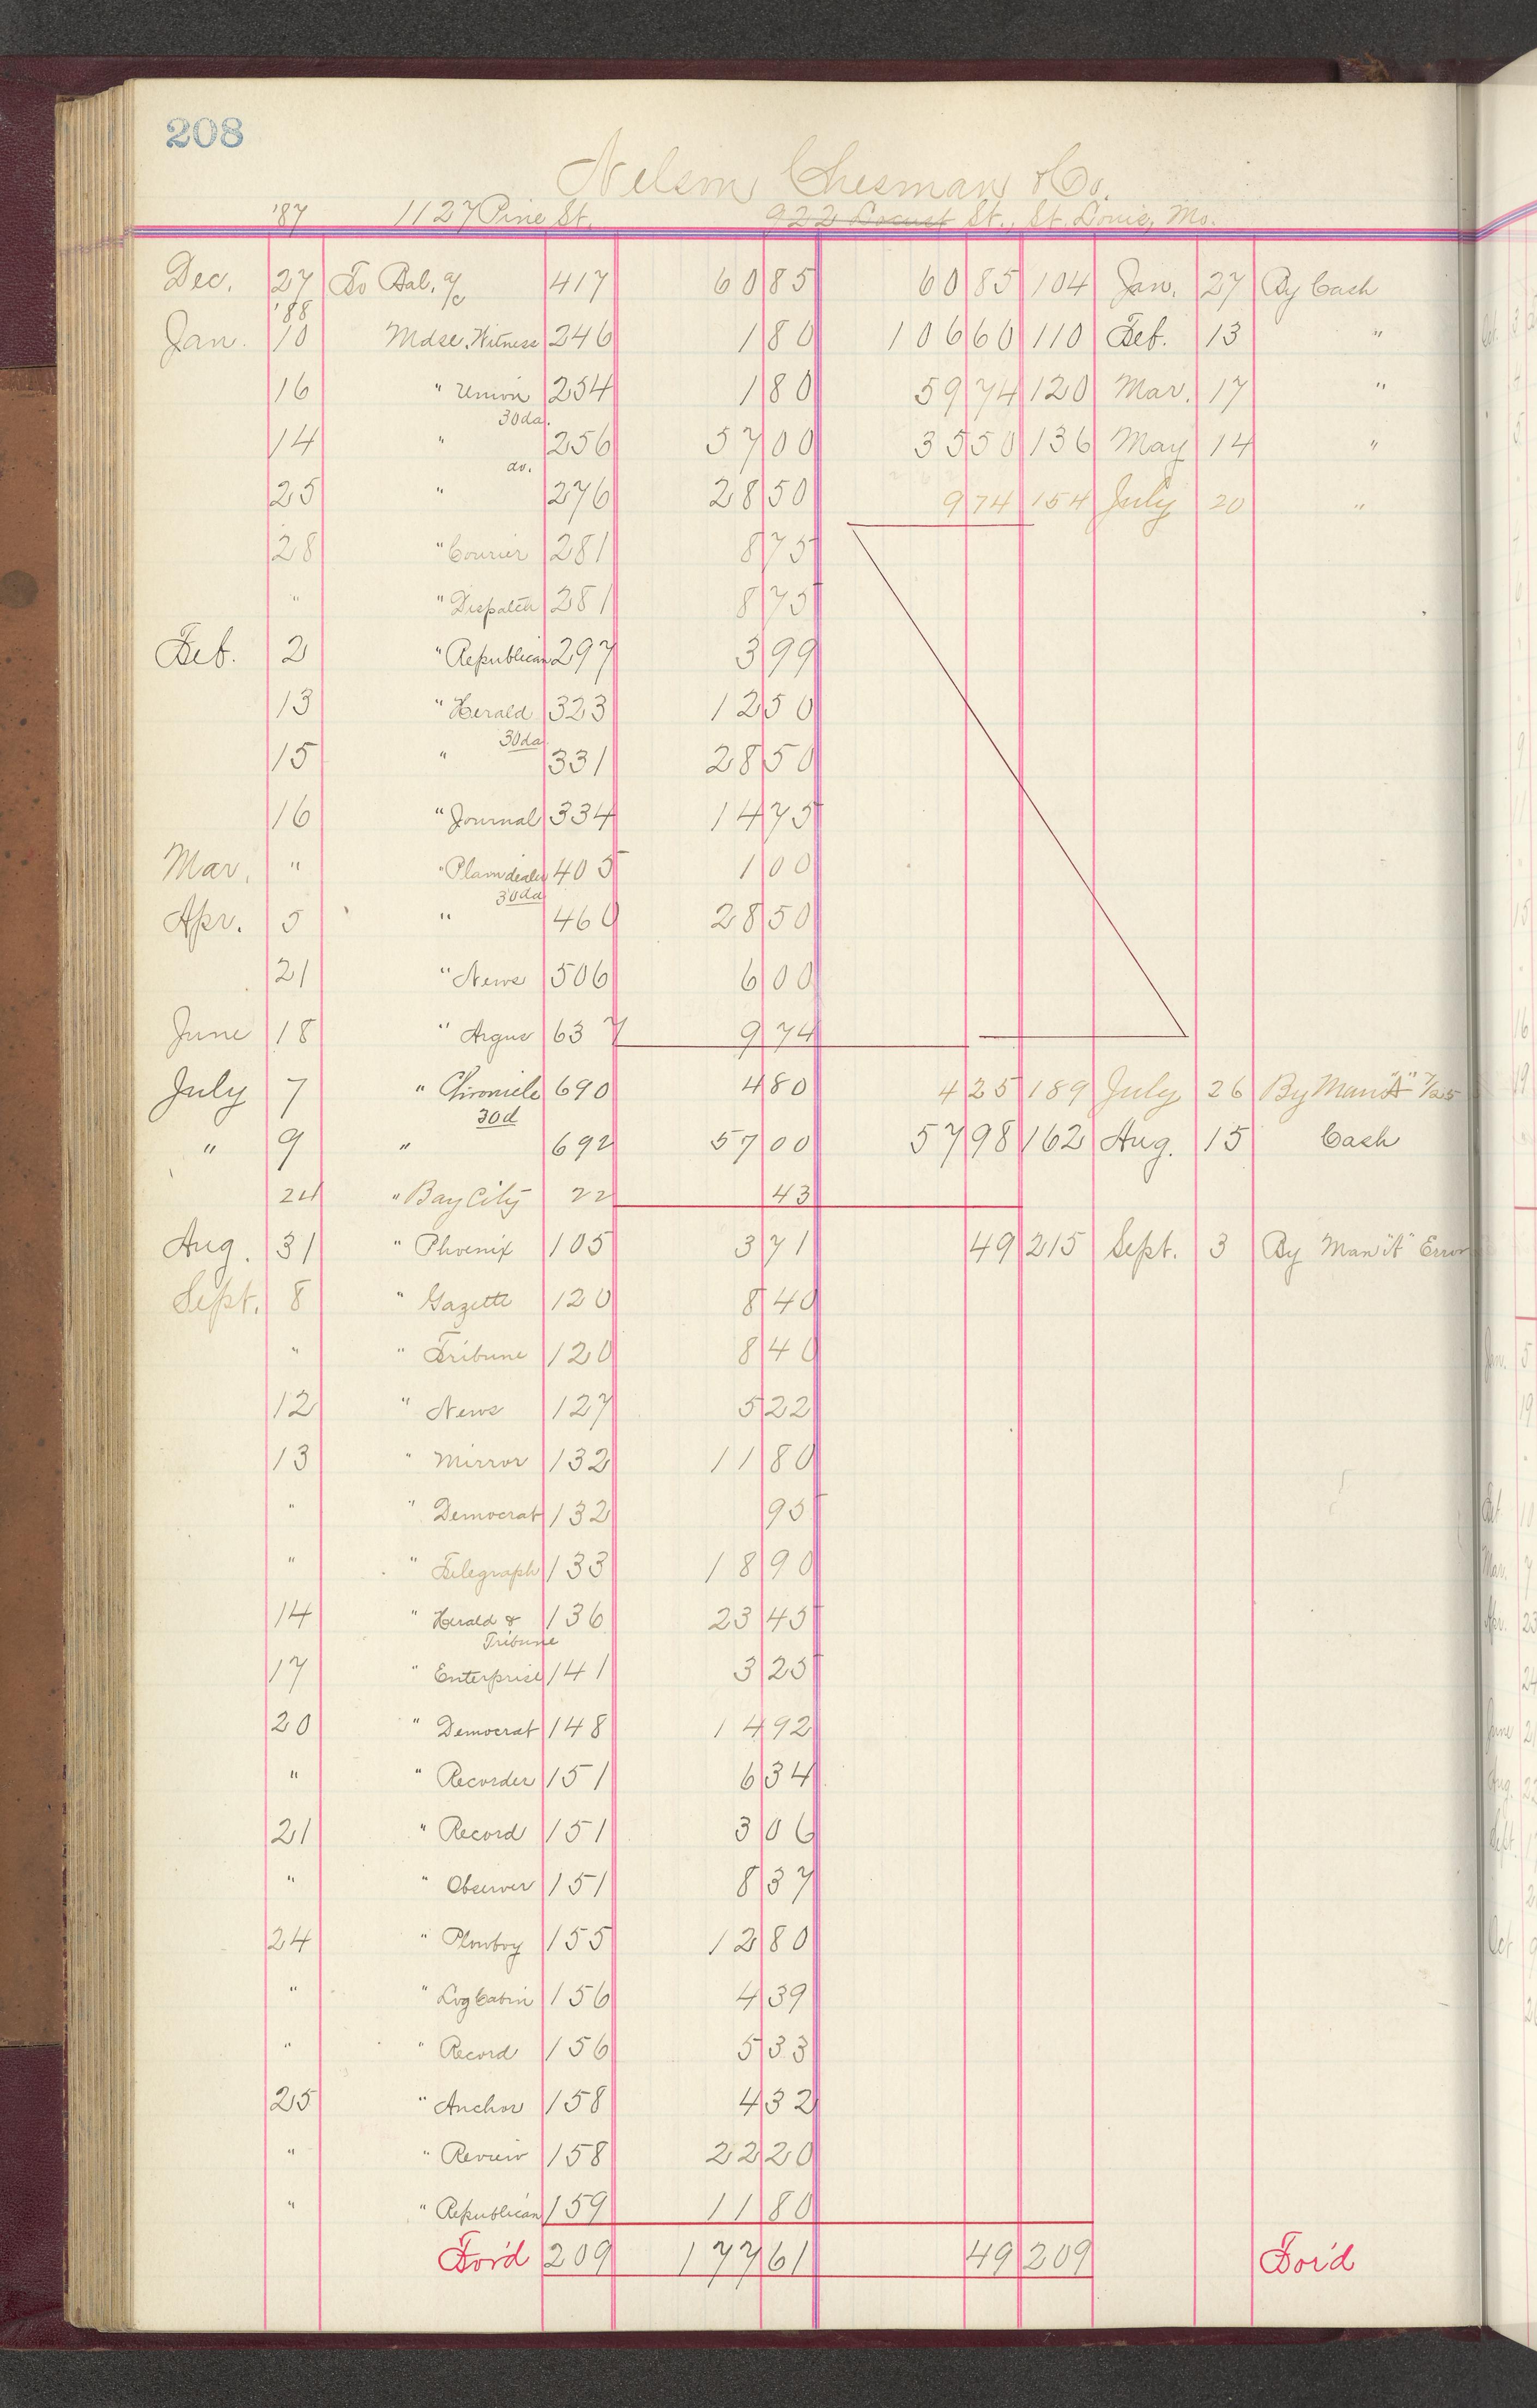 208
Nelson Chesman & Co.
'87 1127 Pine St. 922 Locust St., St. Louis, Mo.
Dec. 27 To Bal. a/c 417 60 85 60 85 104 Jan. 27 By Cash
'88
Jan. 10 Mdse. Witness 246 1 80 106 60 110 Feb. 13 "
16 " Union 254 1 80 59 74 120 Mar. 17 "
30da.
14 " 256 57 00 35 50 136 May 14 "
do.
25 " 276 28 50 9 74 154 July 20 "
28 " Courier 281 8 75
" " Dispatch 281 8 75
Feb. 2 " Republican 297 3 99
13 " Herald 323 12 50
30da.
15 " 331 28 50
16 " Journal 334 14 75
Mar. " " Plaindealer 405 1 00
30da
Apr. 5 " 460 28 50
21 " News 506 6 00
June 18 " Argus 637 9 74
July 7 " Chronicle 690 4 80 4 25 189 July 26 By Man "A" 7/25
30d
" 9 " 692 57 00 57 98 162 Aug. 15 Cash
24 " Bay City 22 43
Aug. 31 " Phoenix 105 3 71 49 215 Sept. 3 By Man "A" Error
Sept. 8 " Gazette 120 8 40
" " Tribune 120 8 40
12 " News 127 5 22
13 " Mirror 132 11 80
" " Democrat 132 95
" " Telegraph 133 18 90
14 " Herald & 136 23 45
Tribune
17 " Enterprise 141 3 25
20 " Democrat 148 14 92
" " Recorder 151 6 34
21 " Record 151 3 06
" " Observer 151 8 37
24 " Plowboy 155 12 80
" " Log Cabin 156 4 39
" " Record 156 5 33
25 " Anchor 158 4 32
" " Review 158 22 20
" " Republican 159 11 80
For'd 209 177 61 49 209 For'd